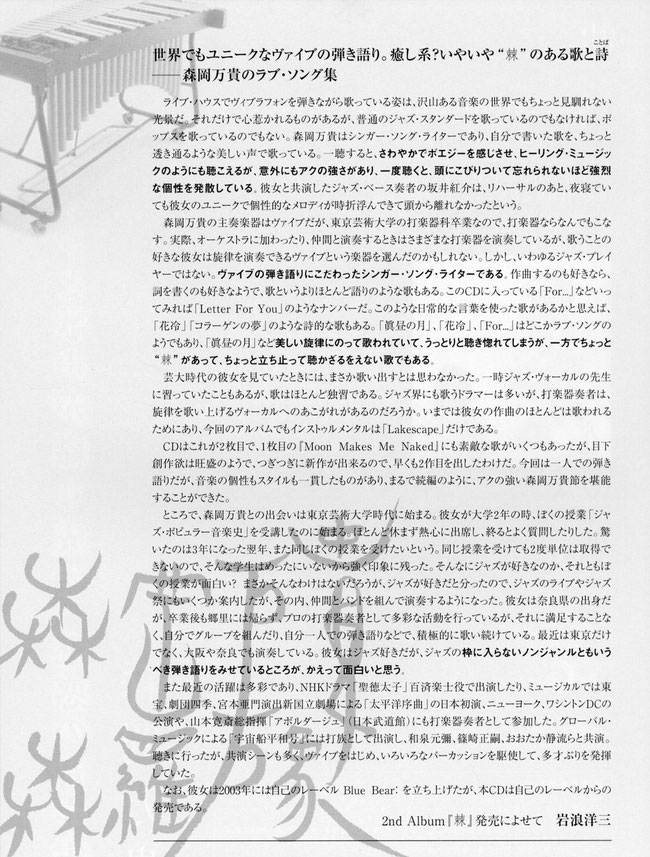 世界でもユニークなヴァイブの弾き語り。癒し系?いやいや“棘”のある歌と詩
ことば
――森岡万貴のラブ・ソング集
ライブ・ハウスでヴィブラフォンを弾きながら歌っている姿は、沢山ある音楽の世界でもちょっと見馴れない
光景だ。それだけで心惹かれるものがあるが、普通のジャズ・スタンダードを歌っているのでもなければ、ポ
ップスを歌っているのでもない。森岡万貴はシンガー・ソング・ライターであり、自分で書いた歌を、ちょっと
透き通るような美しい声で歌っている。一聴すると、さわやかでポエジーを感じさせ、ヒーリング・ミュージッ
クのようにも聴こえるが、意外にもアクの強さがあり、一度聴くと、頭にこびりついて忘れられないほど強烈
な個性を発散している。彼女と共演したジャズ・ベース奏者の坂井紅介は、リハーサルのあと、夜寝てい
ても彼女のユニークで個性的なメロディが時折浮んできて頭から離れなかったという。
森岡万貴の主奏楽器はヴァイブだが、東京芸術大学の打楽器科卒業なので、打楽器ならなんでもこな
す。実際、オーケストラに加わったり、仲間と演奏するときはさまざまな打楽器を演奏しているが、歌うことの
好きな彼女は旋律を演奏できるヴァイブという楽器を選んだのかもしれない。しかし、いわゆるジャズ・プレイ
ヤーではない。ヴァイブの弾き語りにこだわったシンガー・ソング・ライターである。作曲するのも好きなら、
詞を書くのも好きなようで、歌というよりほとんど語りのような歌もある。このCDに入っている「For...」などいっ
てみれば「Letter For You」のようなナンバーだ。このような日常的な言葉を使った歌があるかと思えば、
「花冷」「コラーゲンの夢」のような詩的な歌もある。「眞昼の月」、「花冷」、「For...」はどこかラブ・ソングの
ようでもあり、「眞昼の月」など美しい旋律にのって歌われていて、うっとりと聴き惚れてしまうが、一方でちょっと
“棘”があって、ちょっと立ち止って聴かざるをえない歌でもある。
芸大時代の彼女を見ていたときには、まさか歌い出すとは思わなかった。一時ジャズ・ヴォーカルの先生
に習っていたこともあるが、歌はほとんど独習である。ジャズ界にも歌うドラマーは多いが、打楽器奏者は、
旋律を歌い上げるヴォーカルへのあこがれがあるのだろうか。いまでは彼女の作曲のほとんどは歌われる
ためにあり、今回のアルバムでもインストゥルメンタルは「Lakescape」だけである。
CDはこれが2枚目で、1枚目の『Moon Makes Me Naked』にも素敵な歌がいくつもあったが、目下
創作欲は旺盛のようで、つぎつぎに新作が出来るので、早くも2作目を出したわけだ。今回は一人での弾き
語りだが、音楽の個性もスタイルも一貫したものがあり、まるで続編のように、アクの強い森岡万貴節を堪能
することができた。
ところで、森岡万貴との出会いは東京芸術大学時代に始まる。彼女が大学2年の時、ぼくの授業「ジャ
ズ・ポピュラー音楽史」を受講したのに始まる。ほとんど休まず熱心に出席し、終るとよく質問したりした。驚
いたのは3年になった翌年、また同じぼくの授業を受けたいという。同じ授業を受けても2度単位は取得で
きないので、そんな学生はめったにいないから強く印象に残った。そんなにジャズが好きなのか、それともぼ
くの授業が面白い? まさかそんなわけはないだろうが、ジャズが好きだと分ったので、ジャズのライブやジャズ
祭にもいくつか案内したが、その内、仲間とバンドを組んで演奏するようになった。彼女は奈良県の出身だ
が、卒業後も郷里には帰らず、プロの打楽器奏者として多彩な活動を行っているが、それに満足することな
く、自分でグループを組んだり、自分一人での弾き語りなどで、積極的に歌い続けている。最近は東京だけ
でなく、大阪や奈良でも演奏している。彼女はジャズ好きだが、ジャズの枠に入らないノンジャンルともいう
べき弾き語りをみせているところが、かえって面白いと思う。
また最近の活躍は多彩であり、NHKドラマ「聖徳太子」百済楽士役で出演したり、ミュージカルでは東
宝、劇団四季、宮本亜門演出新国立劇場による「太平洋序曲」の日本初演、ニューヨーク、ワシントンDCの
公演や、山本寛斎総指揮「アボルダージュ」(日本武道館)にも打楽器奏者として参加した。グローバル・
ミュージックによる「宇宙船平和号」には打族として出演し、和泉元彌、篠崎正嗣、おおたか静流らと共演。
聴きに行ったが、共演シーンも多く、ヴァイブをはじめ、いろいろなパーカッションを駆使して、多才ぶりを発揮
していた。
なお、彼女は2003年には自己のレーベル Blue Bear: を立ち上げたが、本CDは自己のレーベルからの
発売である。
2nd Album『棘』発売によせて 岩浪洋三